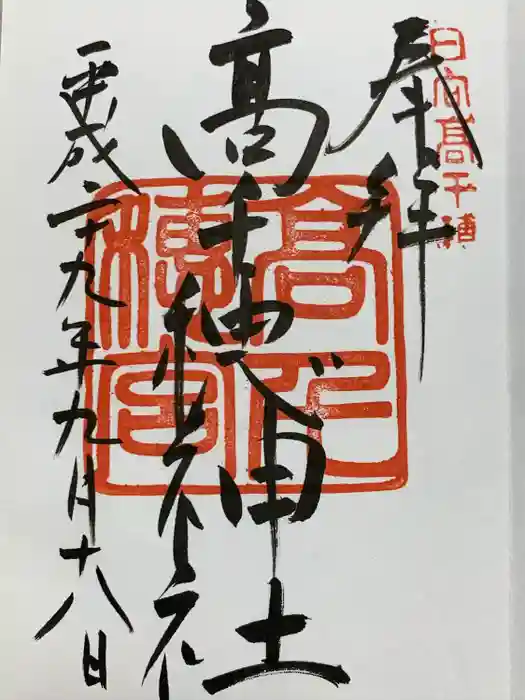 日向高千穂
奉拝
高千穂神社
高千穂宮
平成二十九年九月十八日